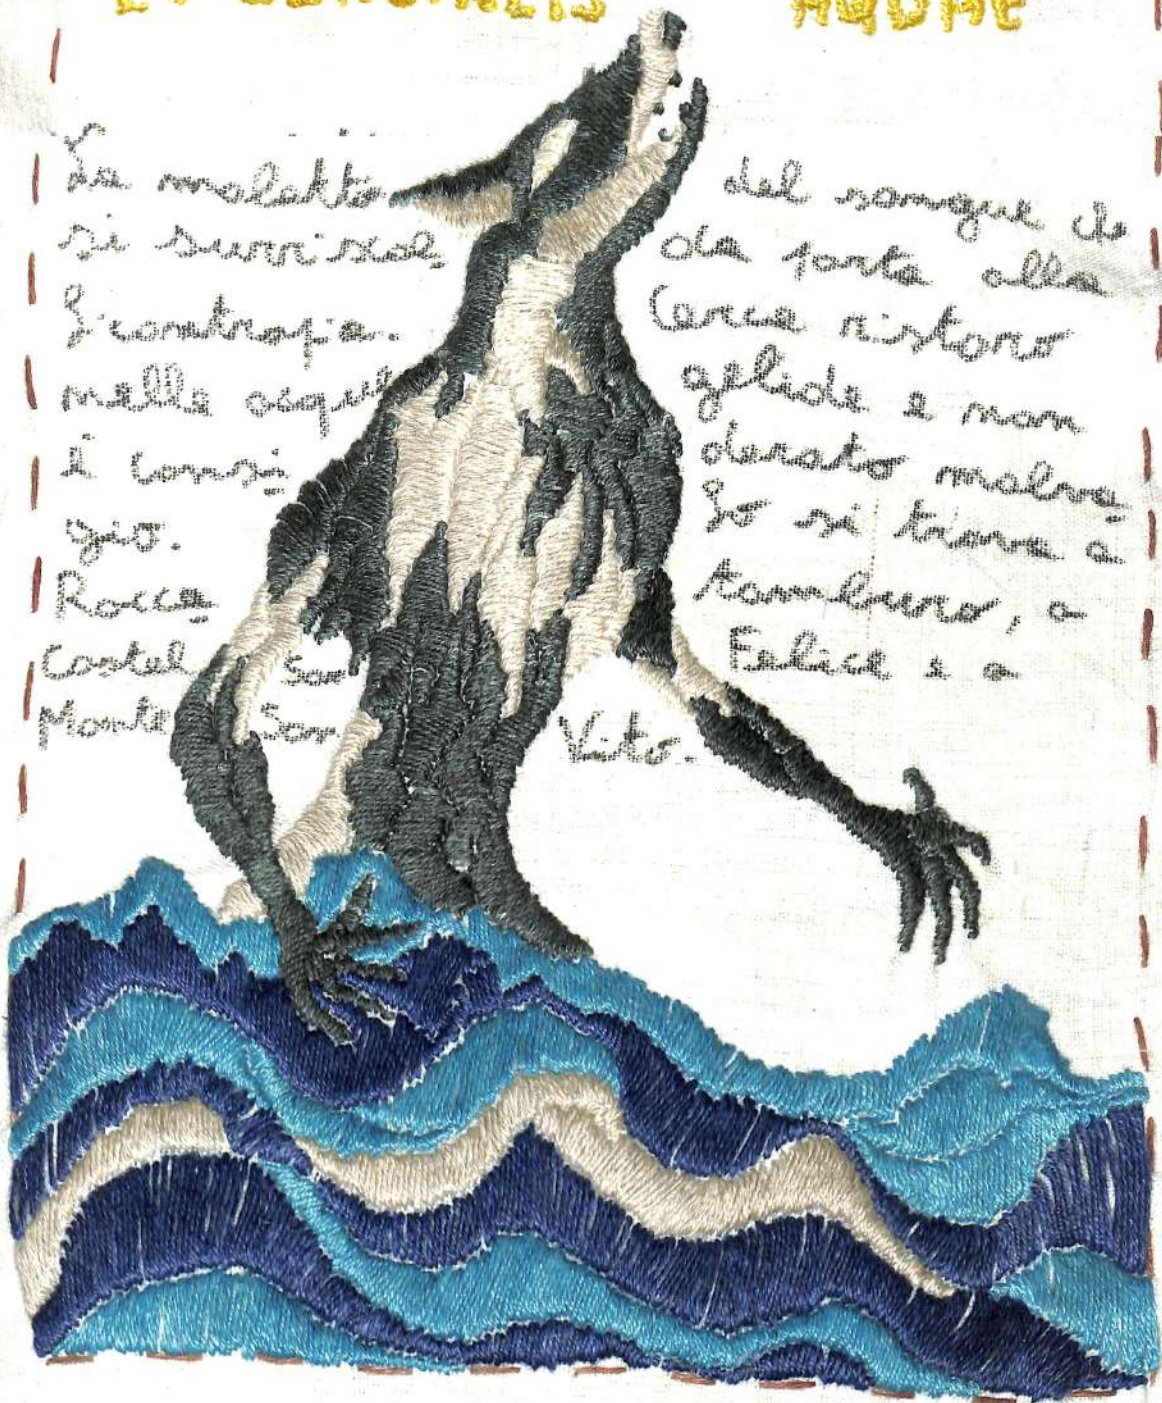 AQUAE
La malattia del sangue che
si surriscal_ da porta alla
licantropia. Cerca ristoro
nelle acque gelide e non
è consi_ derato malva_
gio. Lo si trova a
Rocca_ tamburo, a
Castel San Felice e a
Monte San Vito.